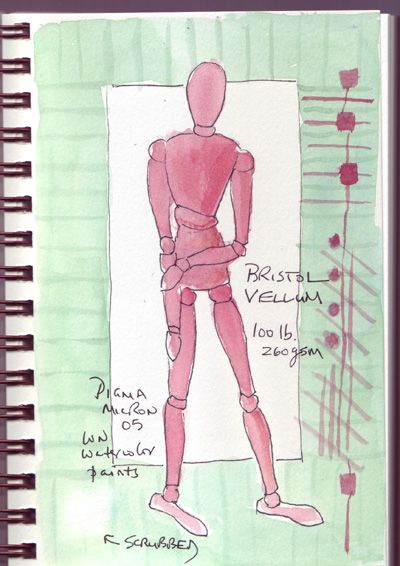 BRISTOL
VELLUM
100 lb.
260gsm
PIGMA
MICRON
05
WN
watercolor
paints
SCRUBBED